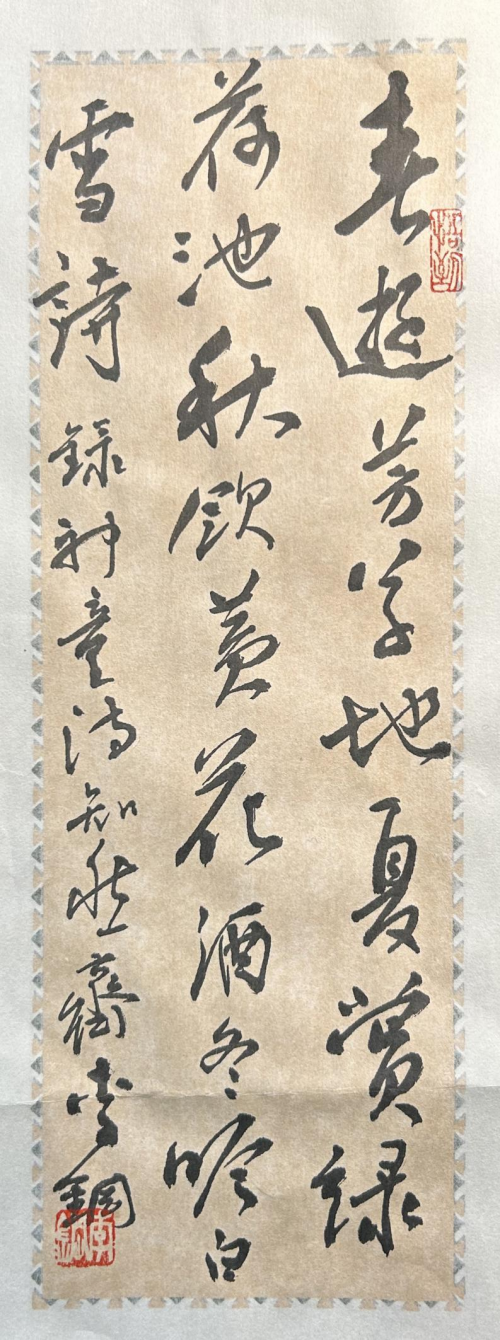 春遊芳草地夏賞綠
荷池秋飲黃花酒冬吟白
雪詩 錄神童詩 知 齋李鋼